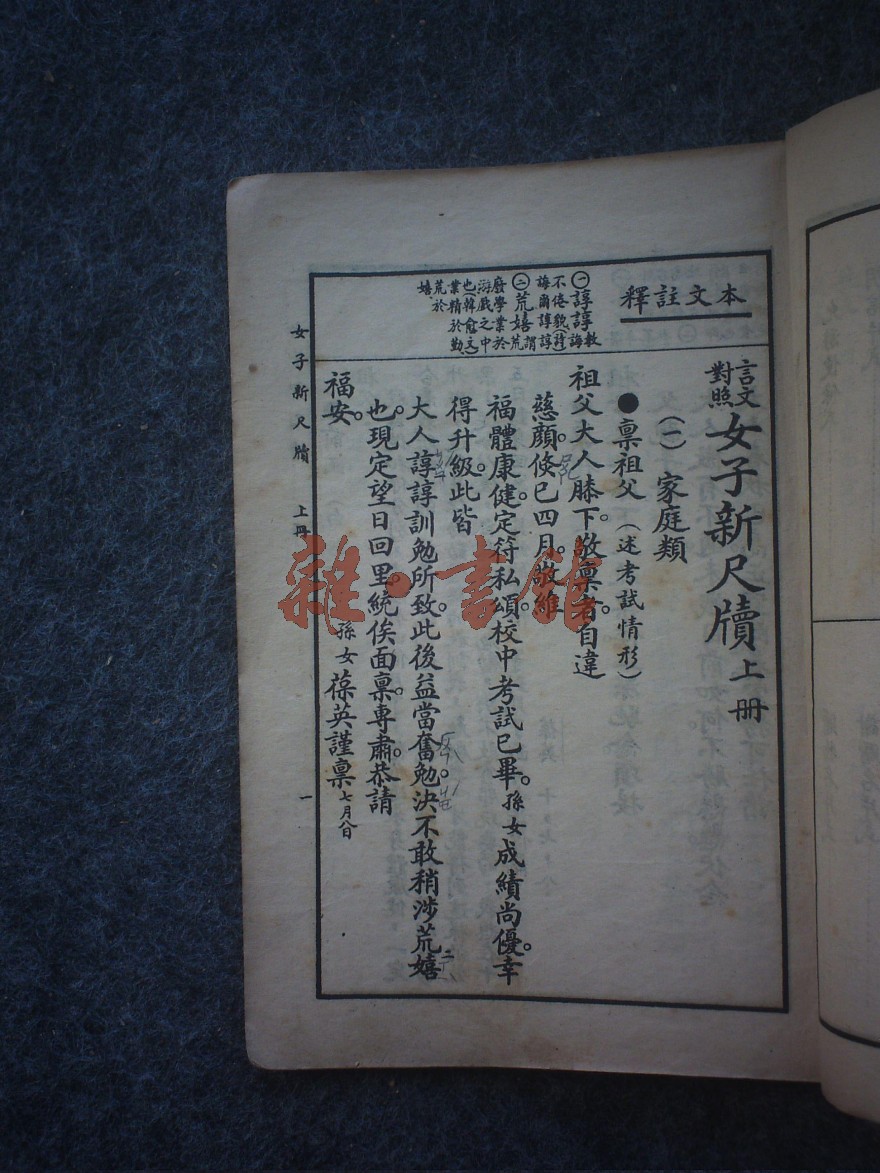 本文註釋
㊀諄諄教誨
不倦貌(詩)
誨爾諄諄
㊁荒嬉謂荒
廢學業於
游戲之中
也(韓愈文)
業精於勤
荒於
嬉
言文對照女子新尺牘上册
(一)家庭類
●稟祖父(述考試情形)
祖父大人膝下。敬稟者。自違
慈顏。倏已四月。敬維
福體康健。定符私頌。校中考試已畢。孫女成績尚優。幸
得升級。此皆
大人諄諄訓勉所致。此後益當奮勉。決不敢稍涉荒嬉
也。現定望日回里。統俟面稟。專肅。恭請
福安。孫女葆英謹稟七月八日
女子新尺牘 上册 一
雜·書館